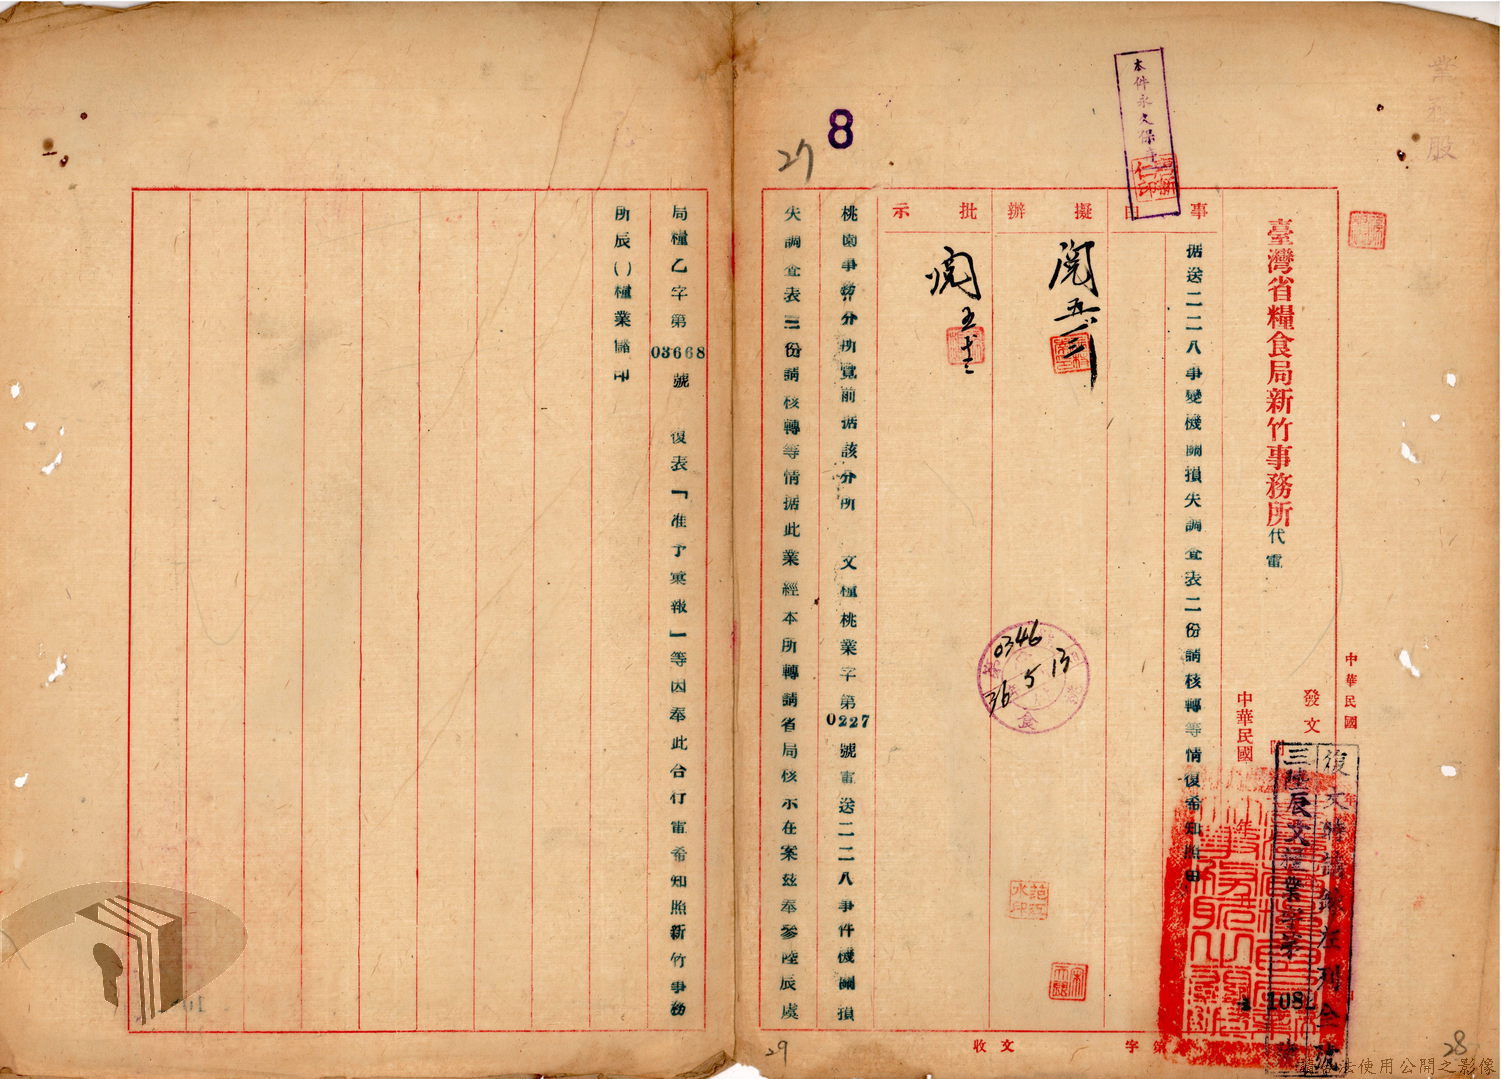 業務股
本件永久保存
8
27
臺灣省糧食局新竹事務所代電
中華民國 年
發文
附
中華民國 年
復文時請錄左列全號
三陸辰文糧業字第
1081
事由
据送二二八事變機關損失調查表二份請核轉等情復希知照由
擬辦
閱 五.十三
批示
閱 五十三
0346
36 5 13
收文 字第
桃園事務分所覽前据該分所 文糧桃業字第0227號電送二二八事件機關損
失調查表三份請核轉等情据此業經本所轉請省局核示在案茲奉參陸辰處
局糧乙字第03668號 復表「准予彙報」等因奉此合行電希知照新竹事務
所辰( )糧業 印
28
29
法使用公開之影像